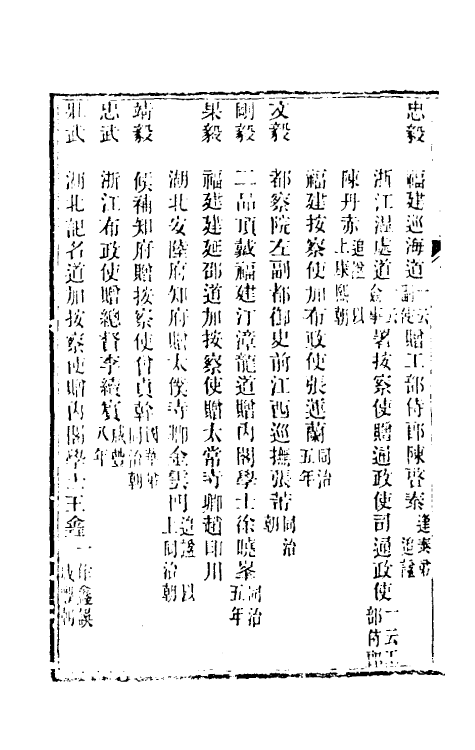 忠毅　福建巡海道一云副使贈工部侍郎陳啓泰逢泰弟追諡
浙江溫處道一云僉事署按察使贈通政使司通政使一云工部侍郎
陳丹赤追諡以上康熙朝
福建按察使加布政使張運蘭同治五年
文毅　都察院左副都御史前江西巡撫張芾同治朝
剛毅　二品頂戴福建汀漳龍道贈內閣學士徐曉峯同治五年
果毅　福建建延邵道加按察使贈太常寺卿趙印川
湖北安陸府知府贈太僕寺卿金雲門追諡以上同治朝
靖毅　候補知府贈按察使曾貞幹國華弟同治朝
忠武　浙江布政使贈總督李續賓咸豐八年
壯武　湖北記名道加按察使贈內閣學士王鑫一作錱誤咸豐朝